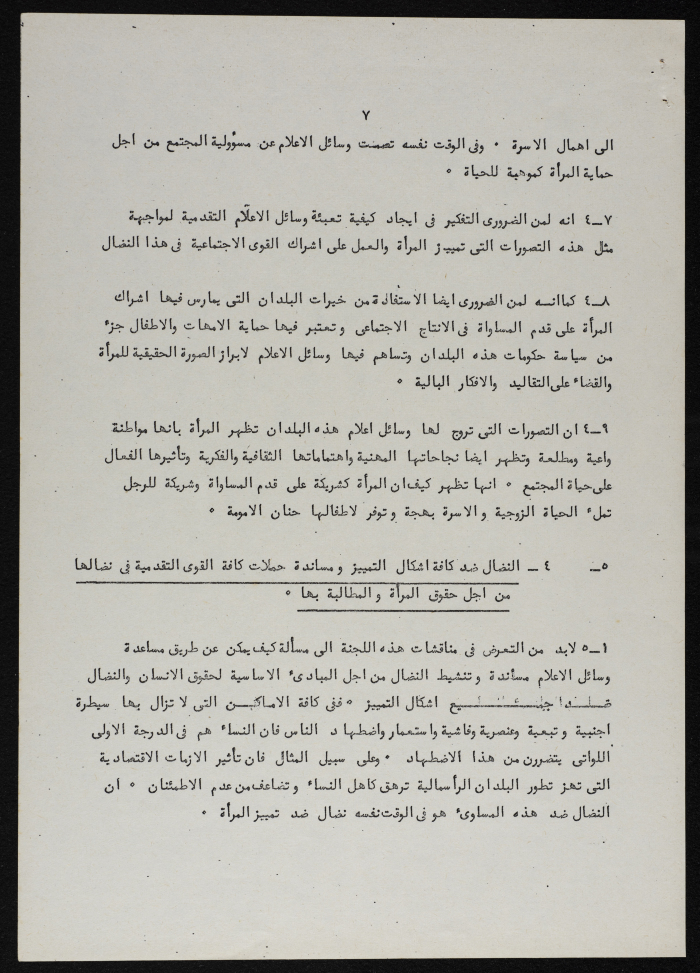 ٧
الى اهمال الاسرة ٠ وفى الوقت نفسه تصمت وسائل الاعلام عن مسؤولية المجتمع من اجل
حماية المرأة كموهبة للحياة ٠
٧ــ٤ انه لمن الضرورى التفكير فى ايجاد كيفية تعبئة وسائل الاعلام التقدمية لمواجهة
مثل هذه التصورات التى تمييز المرأة والعمل على اشراك القوى الاجتماعية فى هذا النضال
٨ــ٤ كماانـه لمن الضرورى ايضا الاستفادة من خيرات البلدان التى يمارس فيها اشراك
المرأة على قدم المساواة فى الانتاج الاجتماعى وتعتبر فيها حماية الامهات والاطفال جزء
من سياسة حكومات هذه البلدان وتساهم فيها وسائل الاعلام لابراز الصورة الحقيقية للمرأة
والقضاء على التقاليد والافكار البالية ٠
٩ــ٤ ان التصورات التى تروج لها وسائل اعلام هذه البلدان تظهر المرأة بانها مواطنة
واعية ومطلعة وتظهر ايضا نجاحاتها المهنية واهتماماتها الثقافية والفكرية وتأثيرها الفعال
على حياة المجتمع ٠ انها تظهر كيف ان المرأة كشريكة على قدم المساواة وشريكة للرجل
تملء الحياة الزوجية والاسرة بهجة وتوفر لاطفالها حنان الامومة ٠
٥ــ ٤ ــ النضال ضد كافة اشكال التمييز ومساندة حملات كافة القوى التقدمية فى نضالها
من اجل حقوق المرأة والمطالبة بها ٠
١ــ٥ لابد من التعرض فى مناقشات هذه اللجنة الى مسألة كيف يمكن عن طريق مساعدة
وسائل الاعلام مسأندة وتنشيط النضال من اجل المبادىء الاساسية لحقوق الانسان والنضال
اشكال التمييز ٠ ففى كافة الاماكـن التى لا تزال بها سيطرة
اجنبية وتبعية وعنصرية وفاشية واستعمار واضطهاد الناس فان النساء هم فى الدرجة الاولى
اللواتى يتضررن من هذا الاضطهاد ٠ وعلى سبيل المثال فان تأثير الازمات الاقتصادية
التى تهز تطور البلدان الرأسمالية ترهق كاهل النساء وتضاعف من عدم الاطمئنان ٠ ان
النضال ضد هذه المساوىء هو فى الوقت نفسه نضال ضد تمييز المرأة ٠